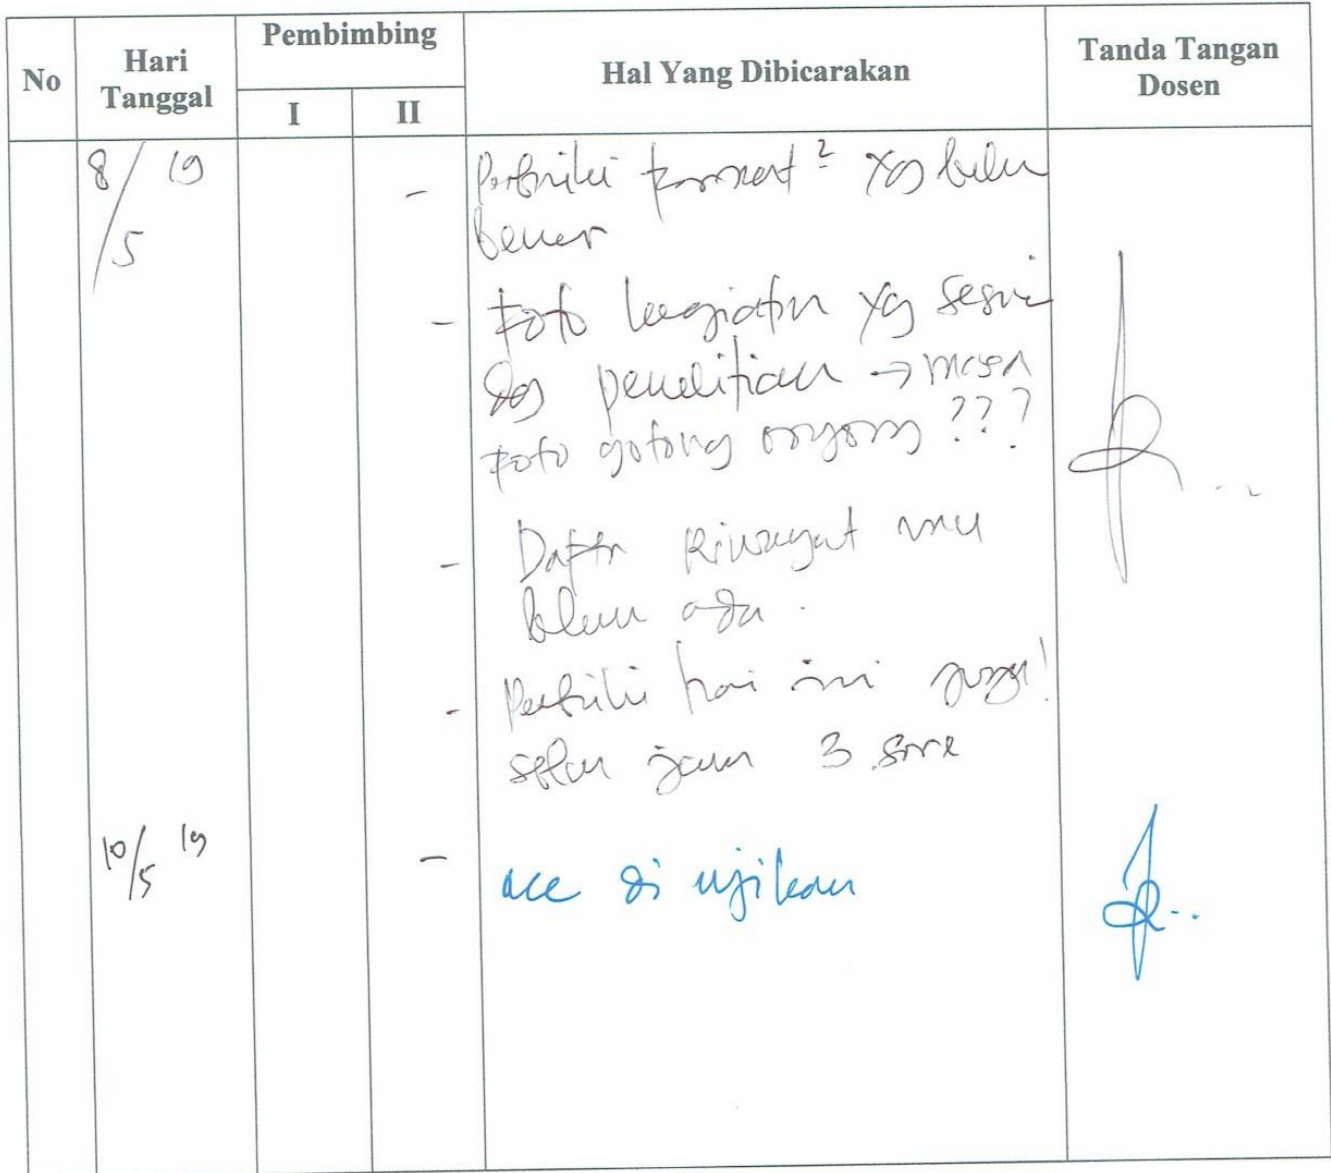 No
Hari
Tanggal
Pembimbing
I
II
Hal Yang Dibicarakan
Tanda Tangan
Dosen
8/5 19
- Perbaiki format² yg belum
benar
- Foto kegiatan yg sesuai
dg penelitian → masa
foto gotong royong ???
- Daftar Riwayat mu
blum ada.
- Perbaiki hari ini juga!
jam 3 sore
10/5 19
- acc di ujikan